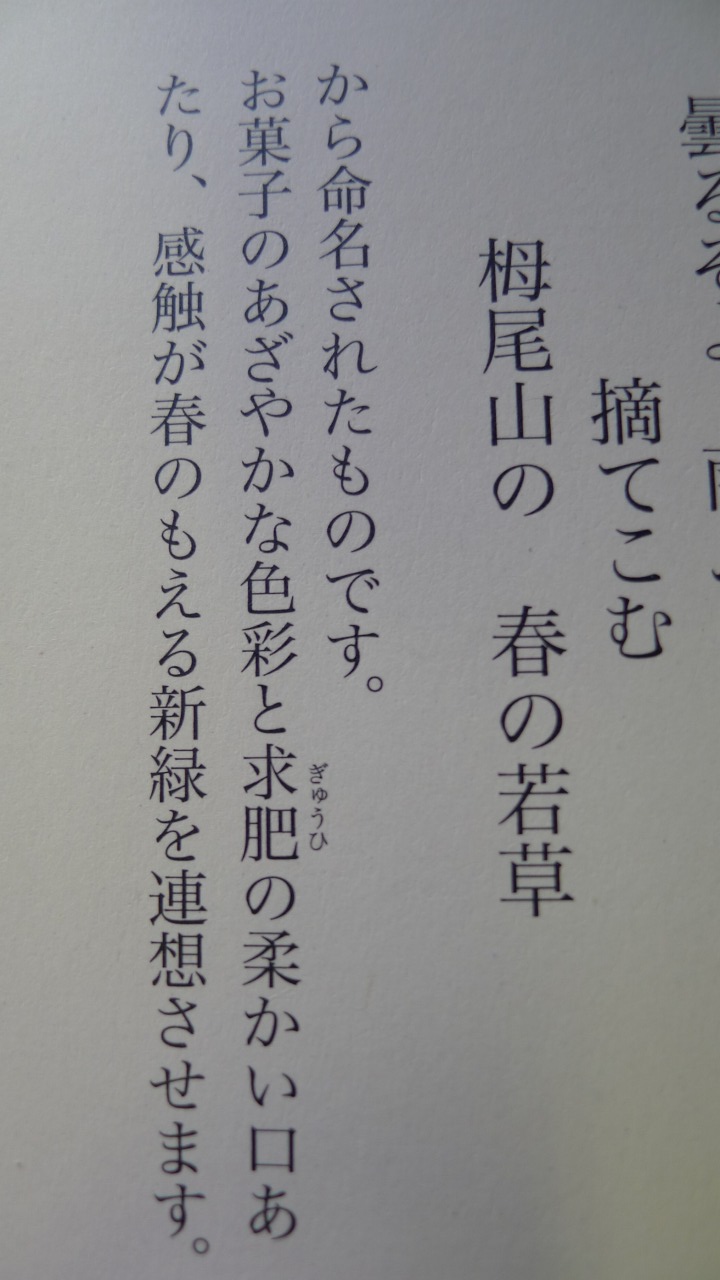 曇るぞよ 雨ふ
摘てこむ
栂尾山の 春の若草
から命名されたものです。
お菓子のあざやかな色彩と求肥の柔かい口あ
ぎゅうひ
たり、感触が春のもえる新緑を連想させます。